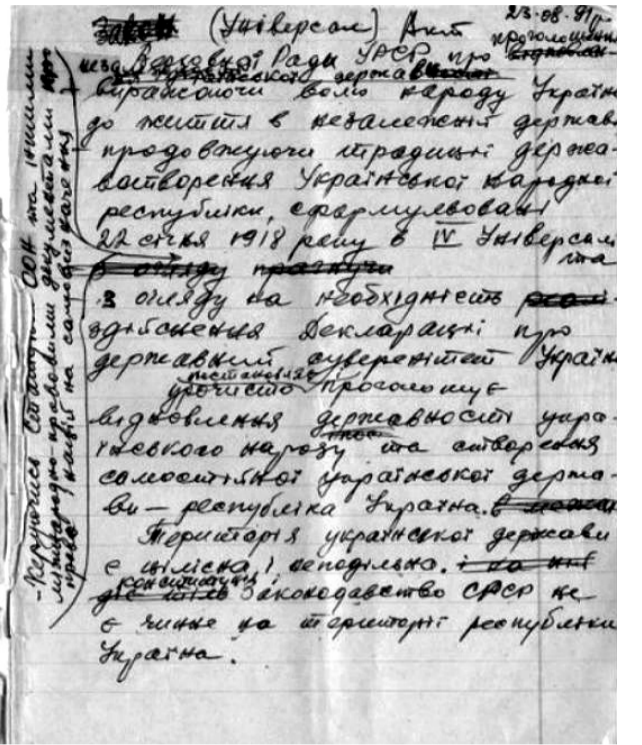 (Універсал) Акт
23-08-91 р.
проголошення
Верховної Ради УРСР про
української державності
Виражаючи волю народу Україн
до життя в незалежній держав
продовжуючи традиції держа-
вотворення Української Народної
республіки, сформульовані
22 січня 1918 року в IV Універсалі
та
з огляду на необхідність
здійснення Декларації про
державний суверенітет Україн
урочисто проголошує
відновлення державності укра-
їнського народу та створення
самостійної української держа-
ви – республіка Україна.
Територія української держави
є цілісна і неподільна.
конституція і
законодавство СРСР не
є чинне на території республіки
Україна.
- Керуючись Статутом ООН та іншими
міжнародно-правовими документами про
право націй на самовизначення